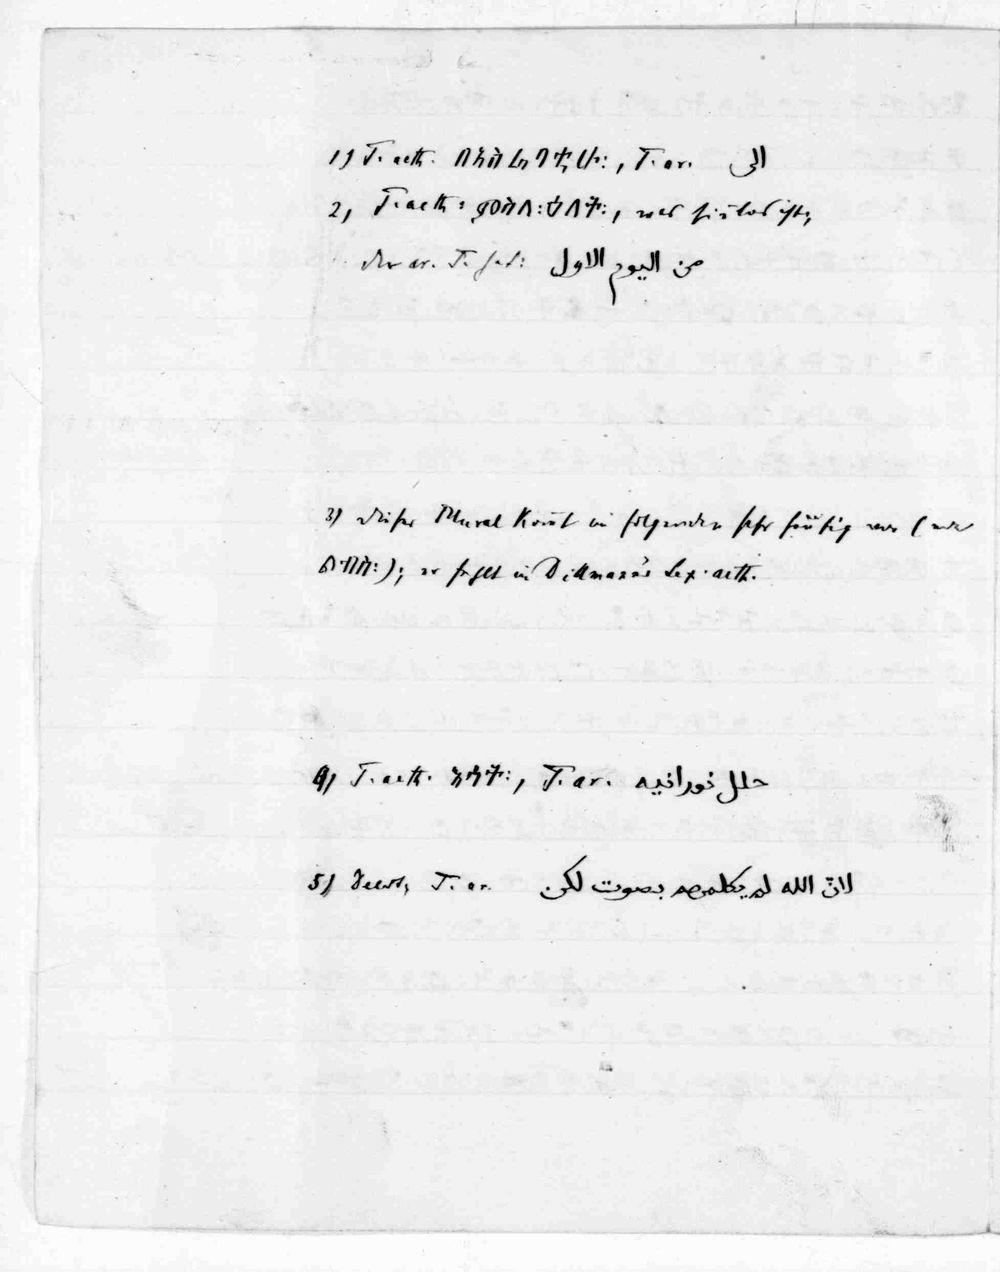 1) T. aeth. , T. ar. الى
2) T. aeth: , was sinnlos ist;
der ar. T. hat: من اليوم الاول
3) Dieser Plural kom̄t in folgenden sehr häufig vor (wie
); er fehlt in Dillmann's Lex. aeth.
4) T. aeth. , T. ar. حلل نورانيه
5) T. ar. لانّ الله لم يكلمهم بصوت لكن